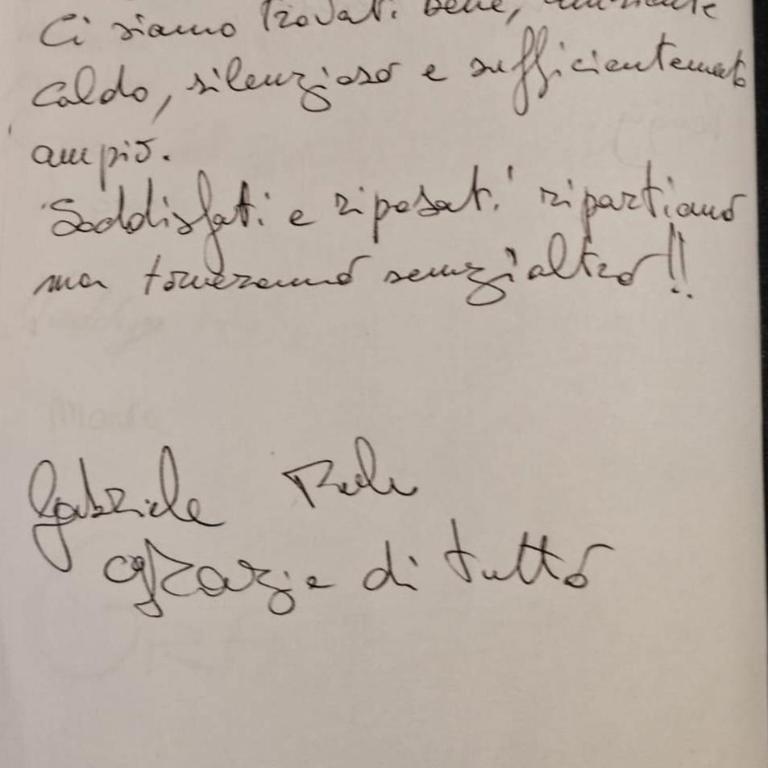 Ci siamo trovati bene, ambiente
caldo, silenzioso e sufficientemente
ampio.
Soddisfati e riposati ripartiamo
ma torneremo senz'altro!!
Gabriele
grazie di tutto